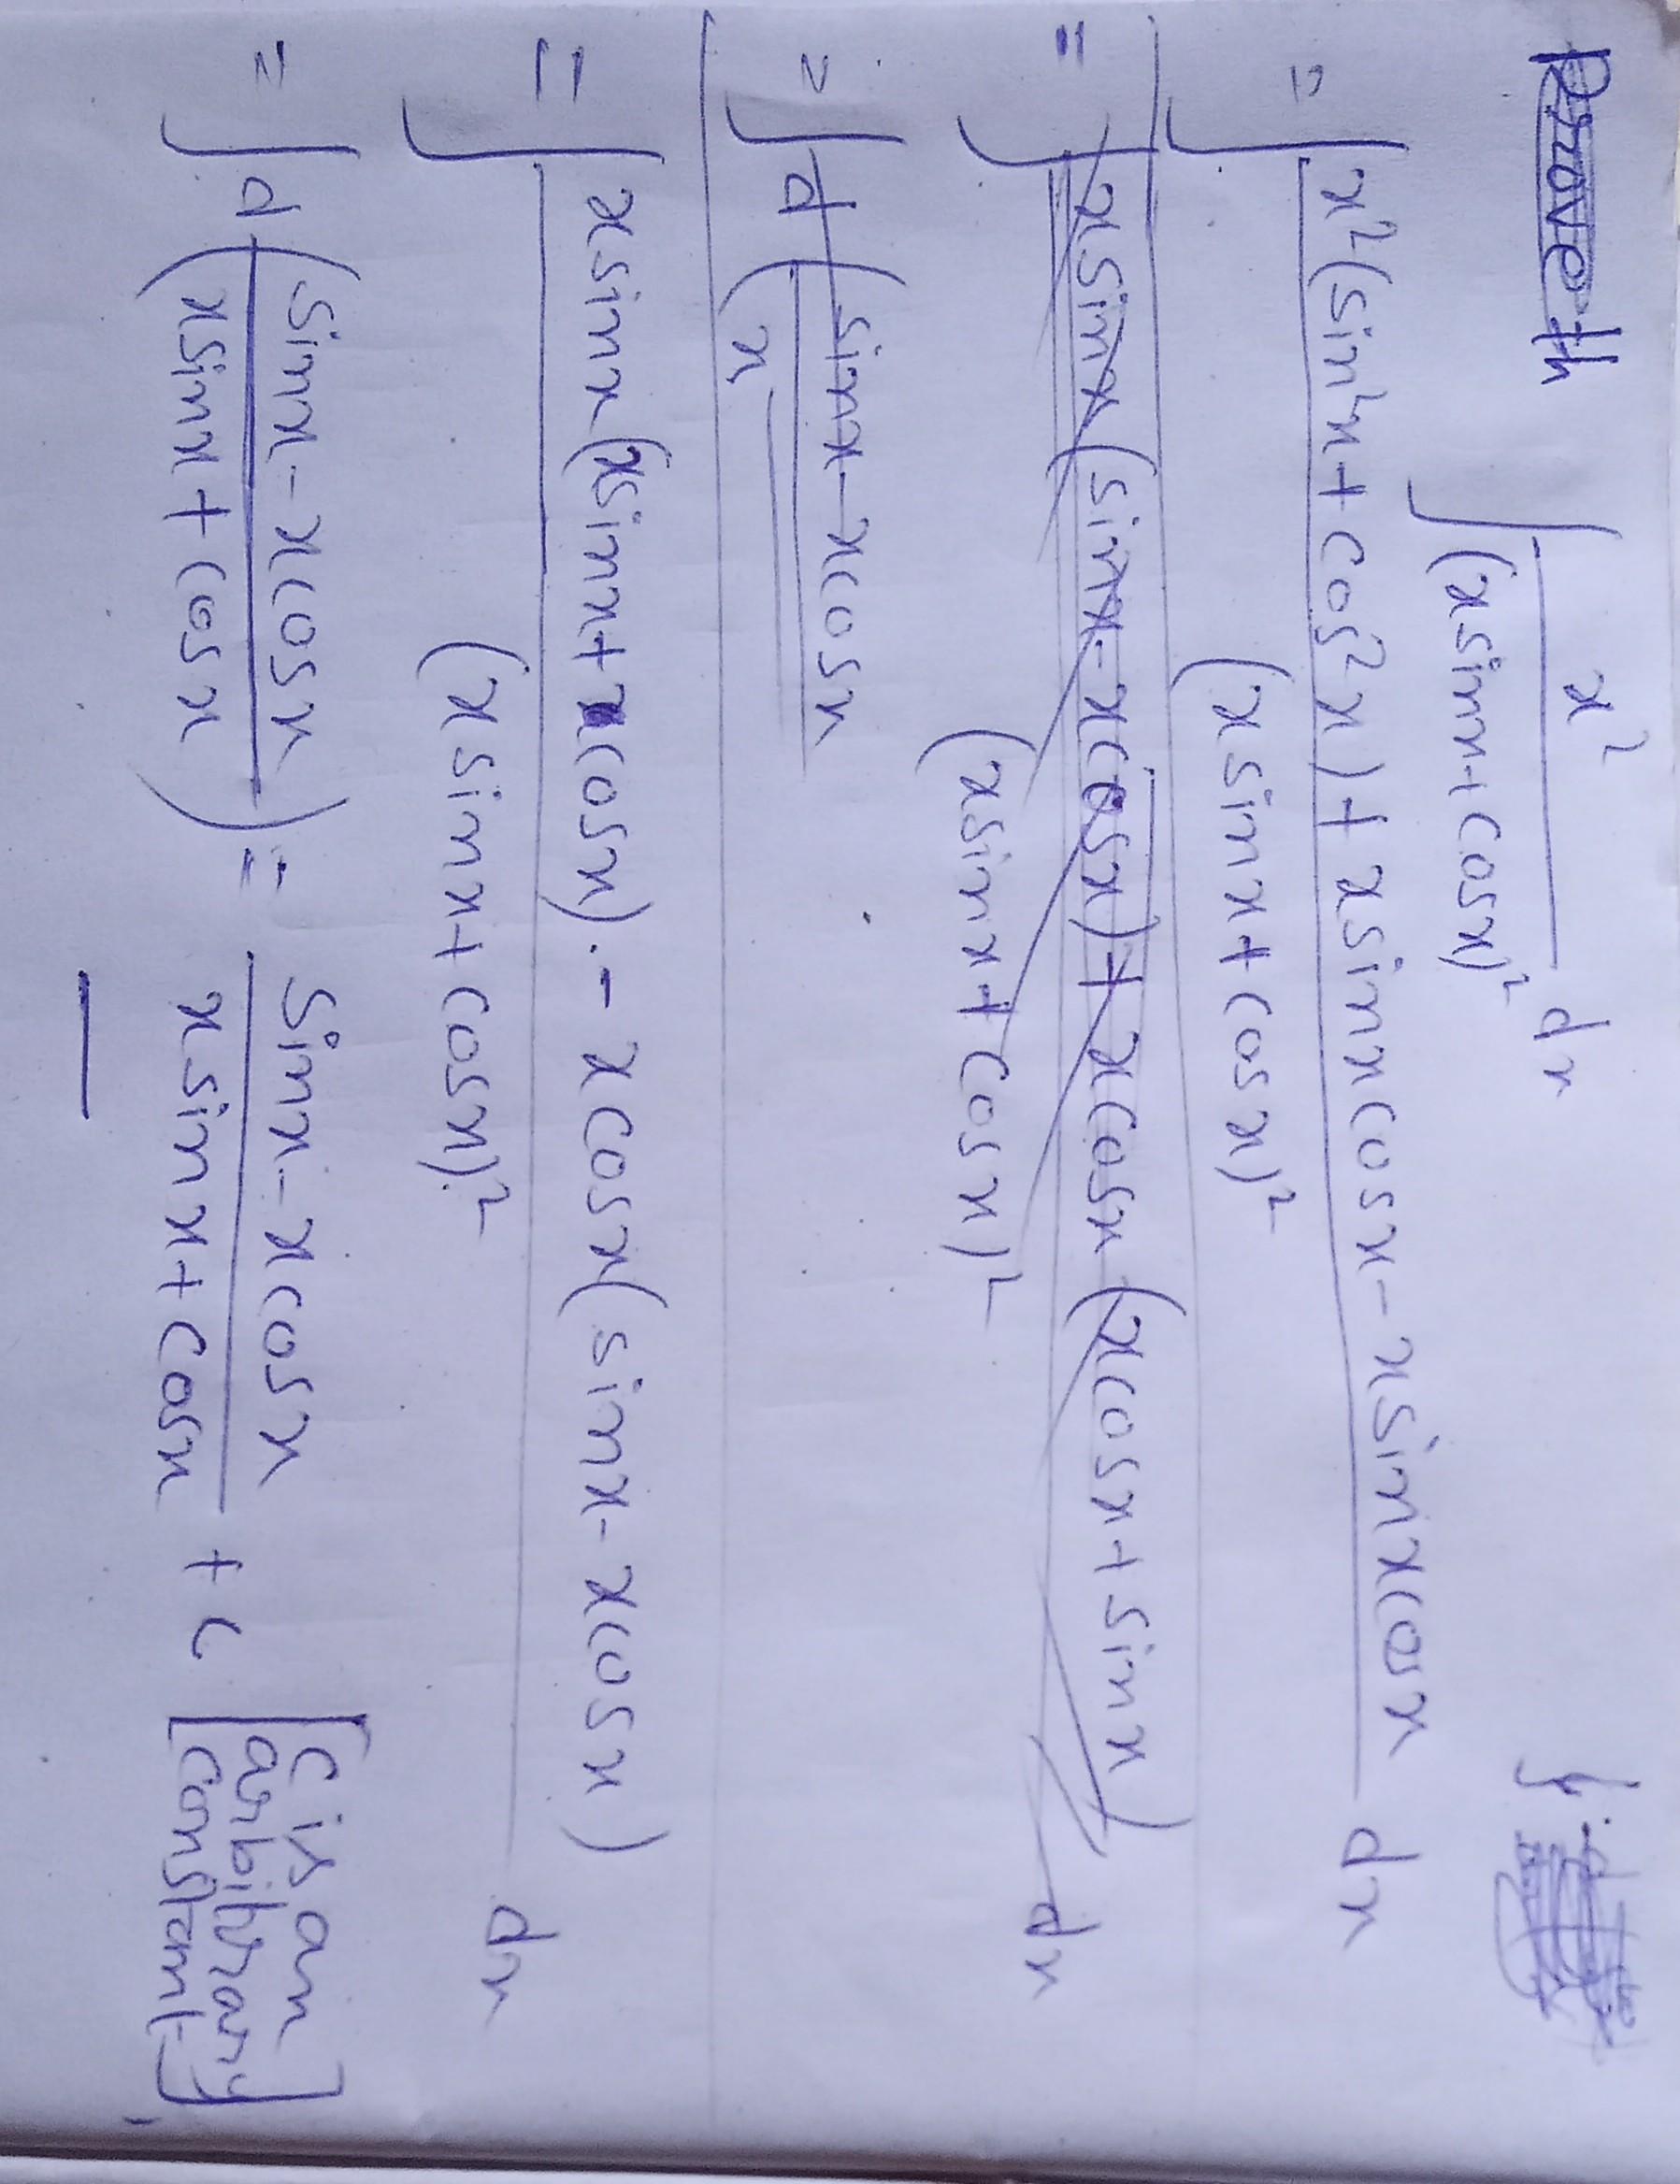 Prove th
∫ x² / (x sinx + cosx)² dx
= ∫ x²(sin²x + cos²x) + x sinx cosx - x sinx cosx / (x sinx + cosx)² dx
= ∫ x sinx (sinx - x cosx) + x cosx (x cosx + sinx) / (x sinx + cosx)² dx
= ∫ d (sinx - x cosx / x
= ∫ x sinx (x sinx + cosx) - x cosx (sinx - x cosx) / (x sinx + cosx)² dx
= ∫ d (sinx - x cosx / x sinx + cosx) = sinx - x cosx / x sinx + cosx + c [c is an arbitrary constant]